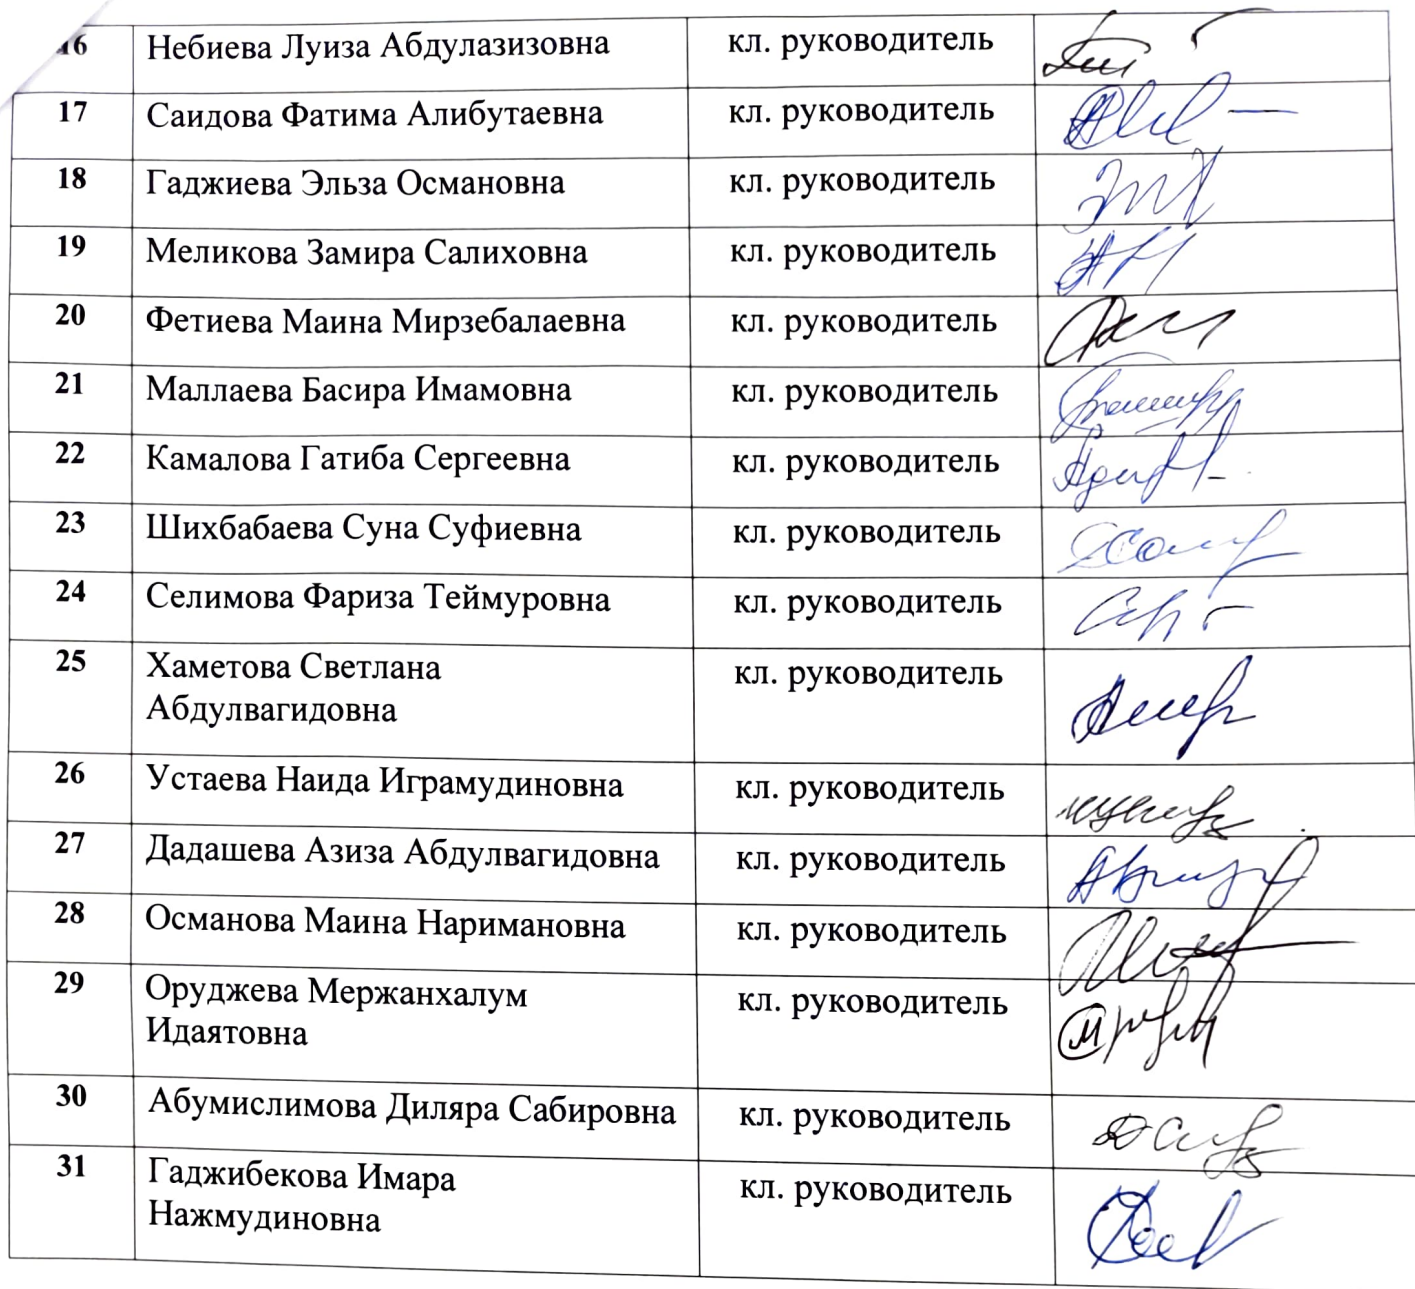 16 Небиева Луиза Абдулазизовна кл. руководитель
17 Саидова Фатима Алибутаевна кл. руководитель
18 Гаджиева Эльза Османовна кл. руководитель
19 Меликова Замира Салиховна кл. руководитель
20 Фетиева Маина Мирзебалаевна кл. руководитель
21 Маллаева Басира Имамовна кл. руководитель
22 Камалова Гатиба Сергеевна кл. руководитель
23 Шихбабаева Суна Суфиевна кл. руководитель
24 Селимова Фариза Теймуровна кл. руководитель
25 Хаметова Светлана кл. руководитель
Абдулвагидовна
26 Устаева Наида Играмудиновна кл. руководитель
27 Дадашева Азиза Абдулвагидовна кл. руководитель
28 Османова Маина Наримановна кл. руководитель
29 Оруджева Мержанхалум кл. руководитель
Идаятовна
30 Абумислимова Диляра Сабировна кл. руководитель
31 Гаджибекова Имара кл. руководитель
Нажмудиновна